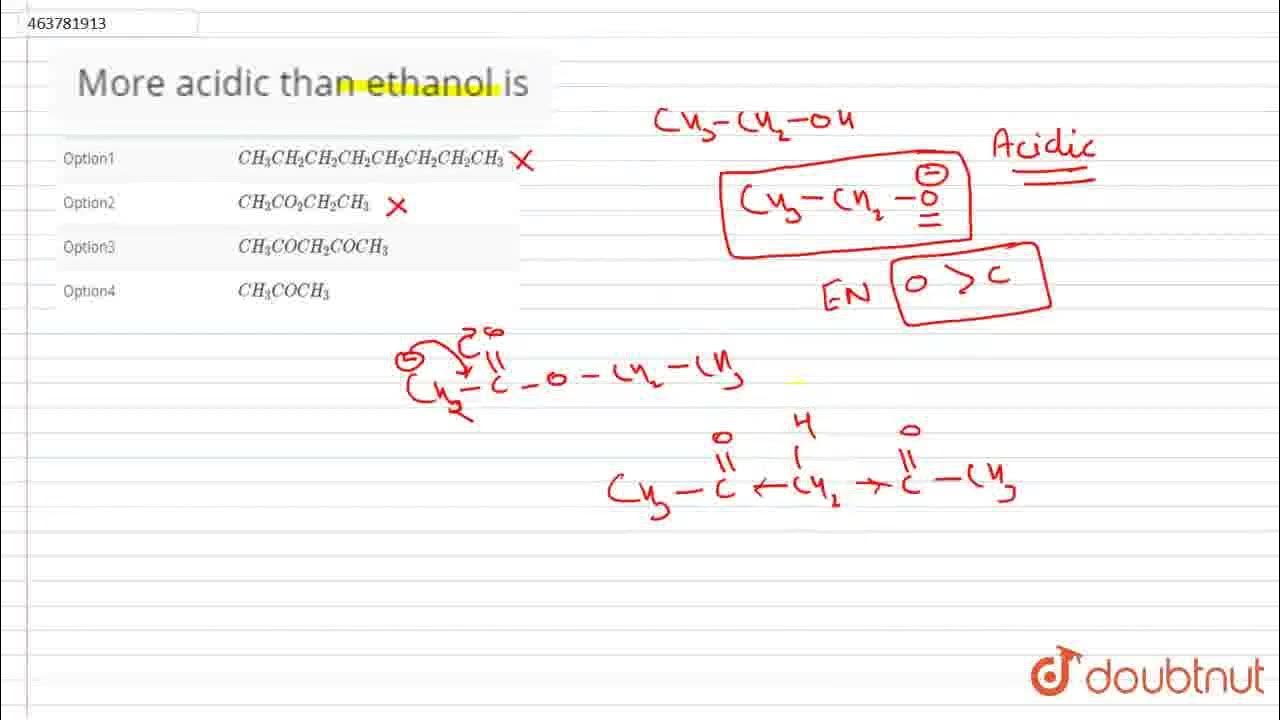 463781913
More acidic than ethanol is
Option1 CH₃CH₂CH₂CH₂CH₂CH₂CH₂CH₃ X
Option2 CH₃CO₂CH₂CH₃ X
Option3 CH₃COCH₂COCH₃
Option4 CH₃COCH₃
CH₃-CH₂-OH
Acidic
CH₃-CH₂-O⊖
EN O > C
O
⊖CH₂-C-O-CH₂-CH₃
O H O
CH₃-C←CH₂→C-CH₃
doubtnut